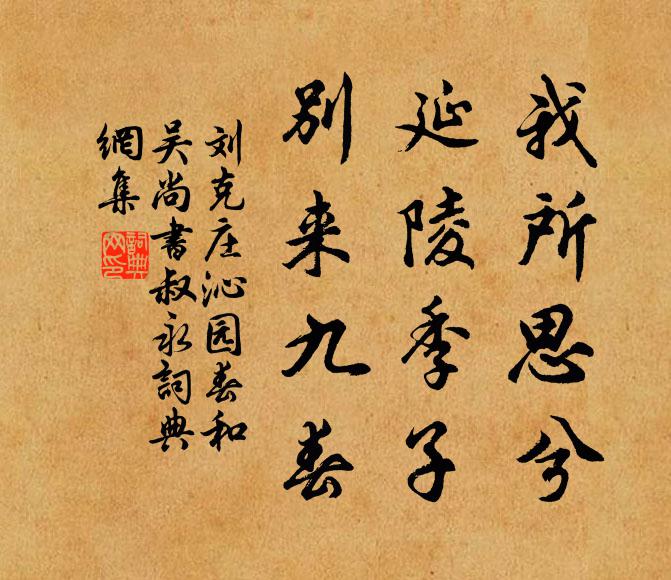 我所思兮
延陵季子
别来九春
刘克庄沁园春和
吴尚书叔永詞典
網集
詞典
网印